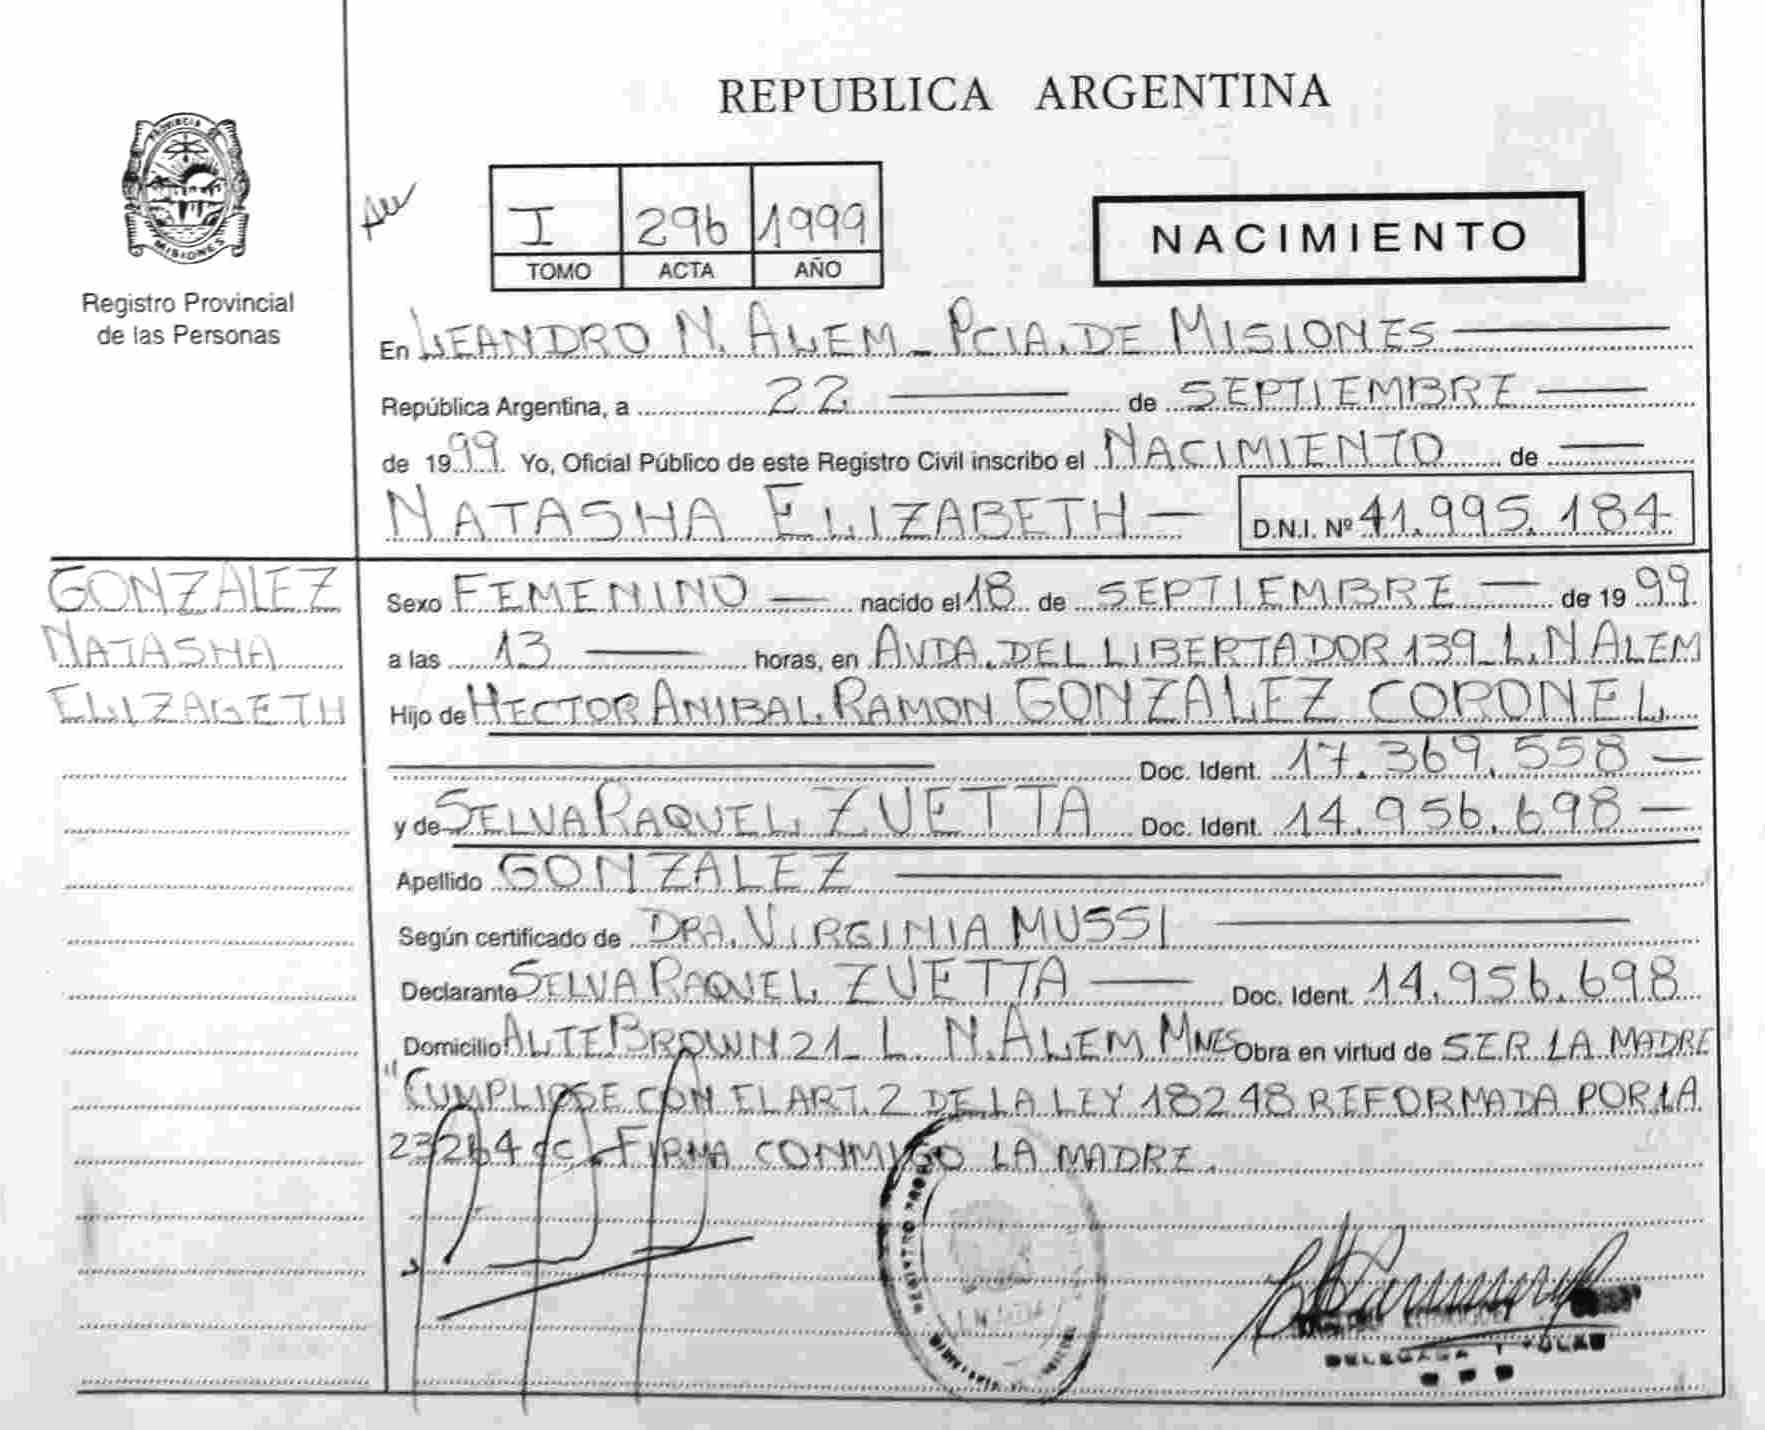 REPUBLICA ARGENTINA
PROVINCIA DE
MISIONES
Registro Provincial
de las Personas
I 296 1999
TOMO ACTA AÑO
NACIMIENTO
En LEANDRO N. ALEM - PCIA. DE MISIONES
República Argentina, a 22 de SEPTIEMBRE
de 1999. Yo, Oficial Público de este Registro Civil inscribo el NACIMIENTO de
NATASHA ELIZABETH - D.N.I. Nº 41.995.184
GONZALEZ
NATASHA
ELIZABETH
Sexo FEMENINO nacido el 18 de SEPTIEMBRE de 1999
a las 13 horas, en AVDA. DEL LIBERTADOR 139 - L.N ALEM
Hijo de HECTOR ANIBAL RAMON GONZALEZ CORONEL
Doc. Ident. 17.369.558
y de SELVA RAQUEL ZUETTA Doc. Ident. 14.956.698
Apellido GONZALEZ
Según certificado de DRA. VIRGINIA MUSSI
Declarante SELVA RAQUEL ZUETTA Doc. Ident. 14.956.698
Domicilio ALTE. BROWN 21 - L. N. ALEM MNES Obra en virtud de SER LA MADRE
"CUMPLIOSE CON EL ART. 2 DE LA LEY 18248 REFORMADA POR LA
23264 CC). FIRMA CONMIGO LA MADRE.
REGISTRO
RODRIGUEZ
DELEGADA TITULAR